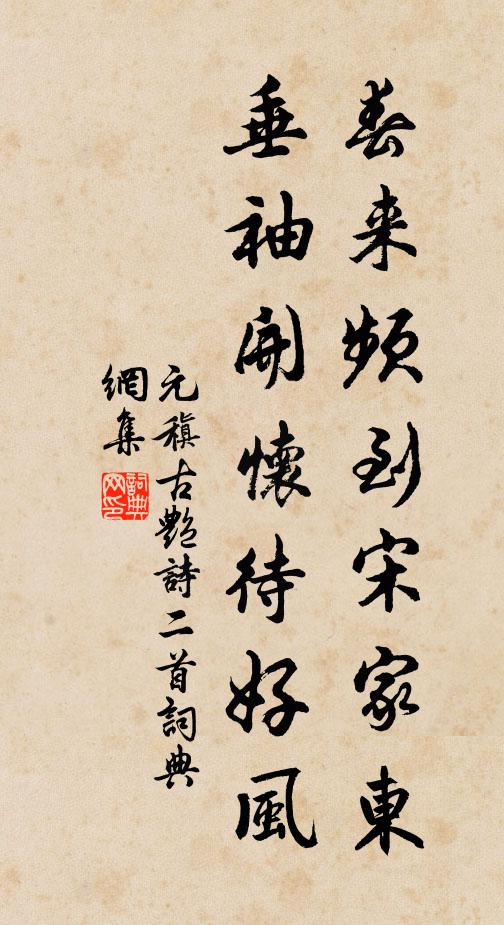 春来頻到宋家東
垂袖開懷待好風
元稹古艶詩二首詞典
網集
詞典網印